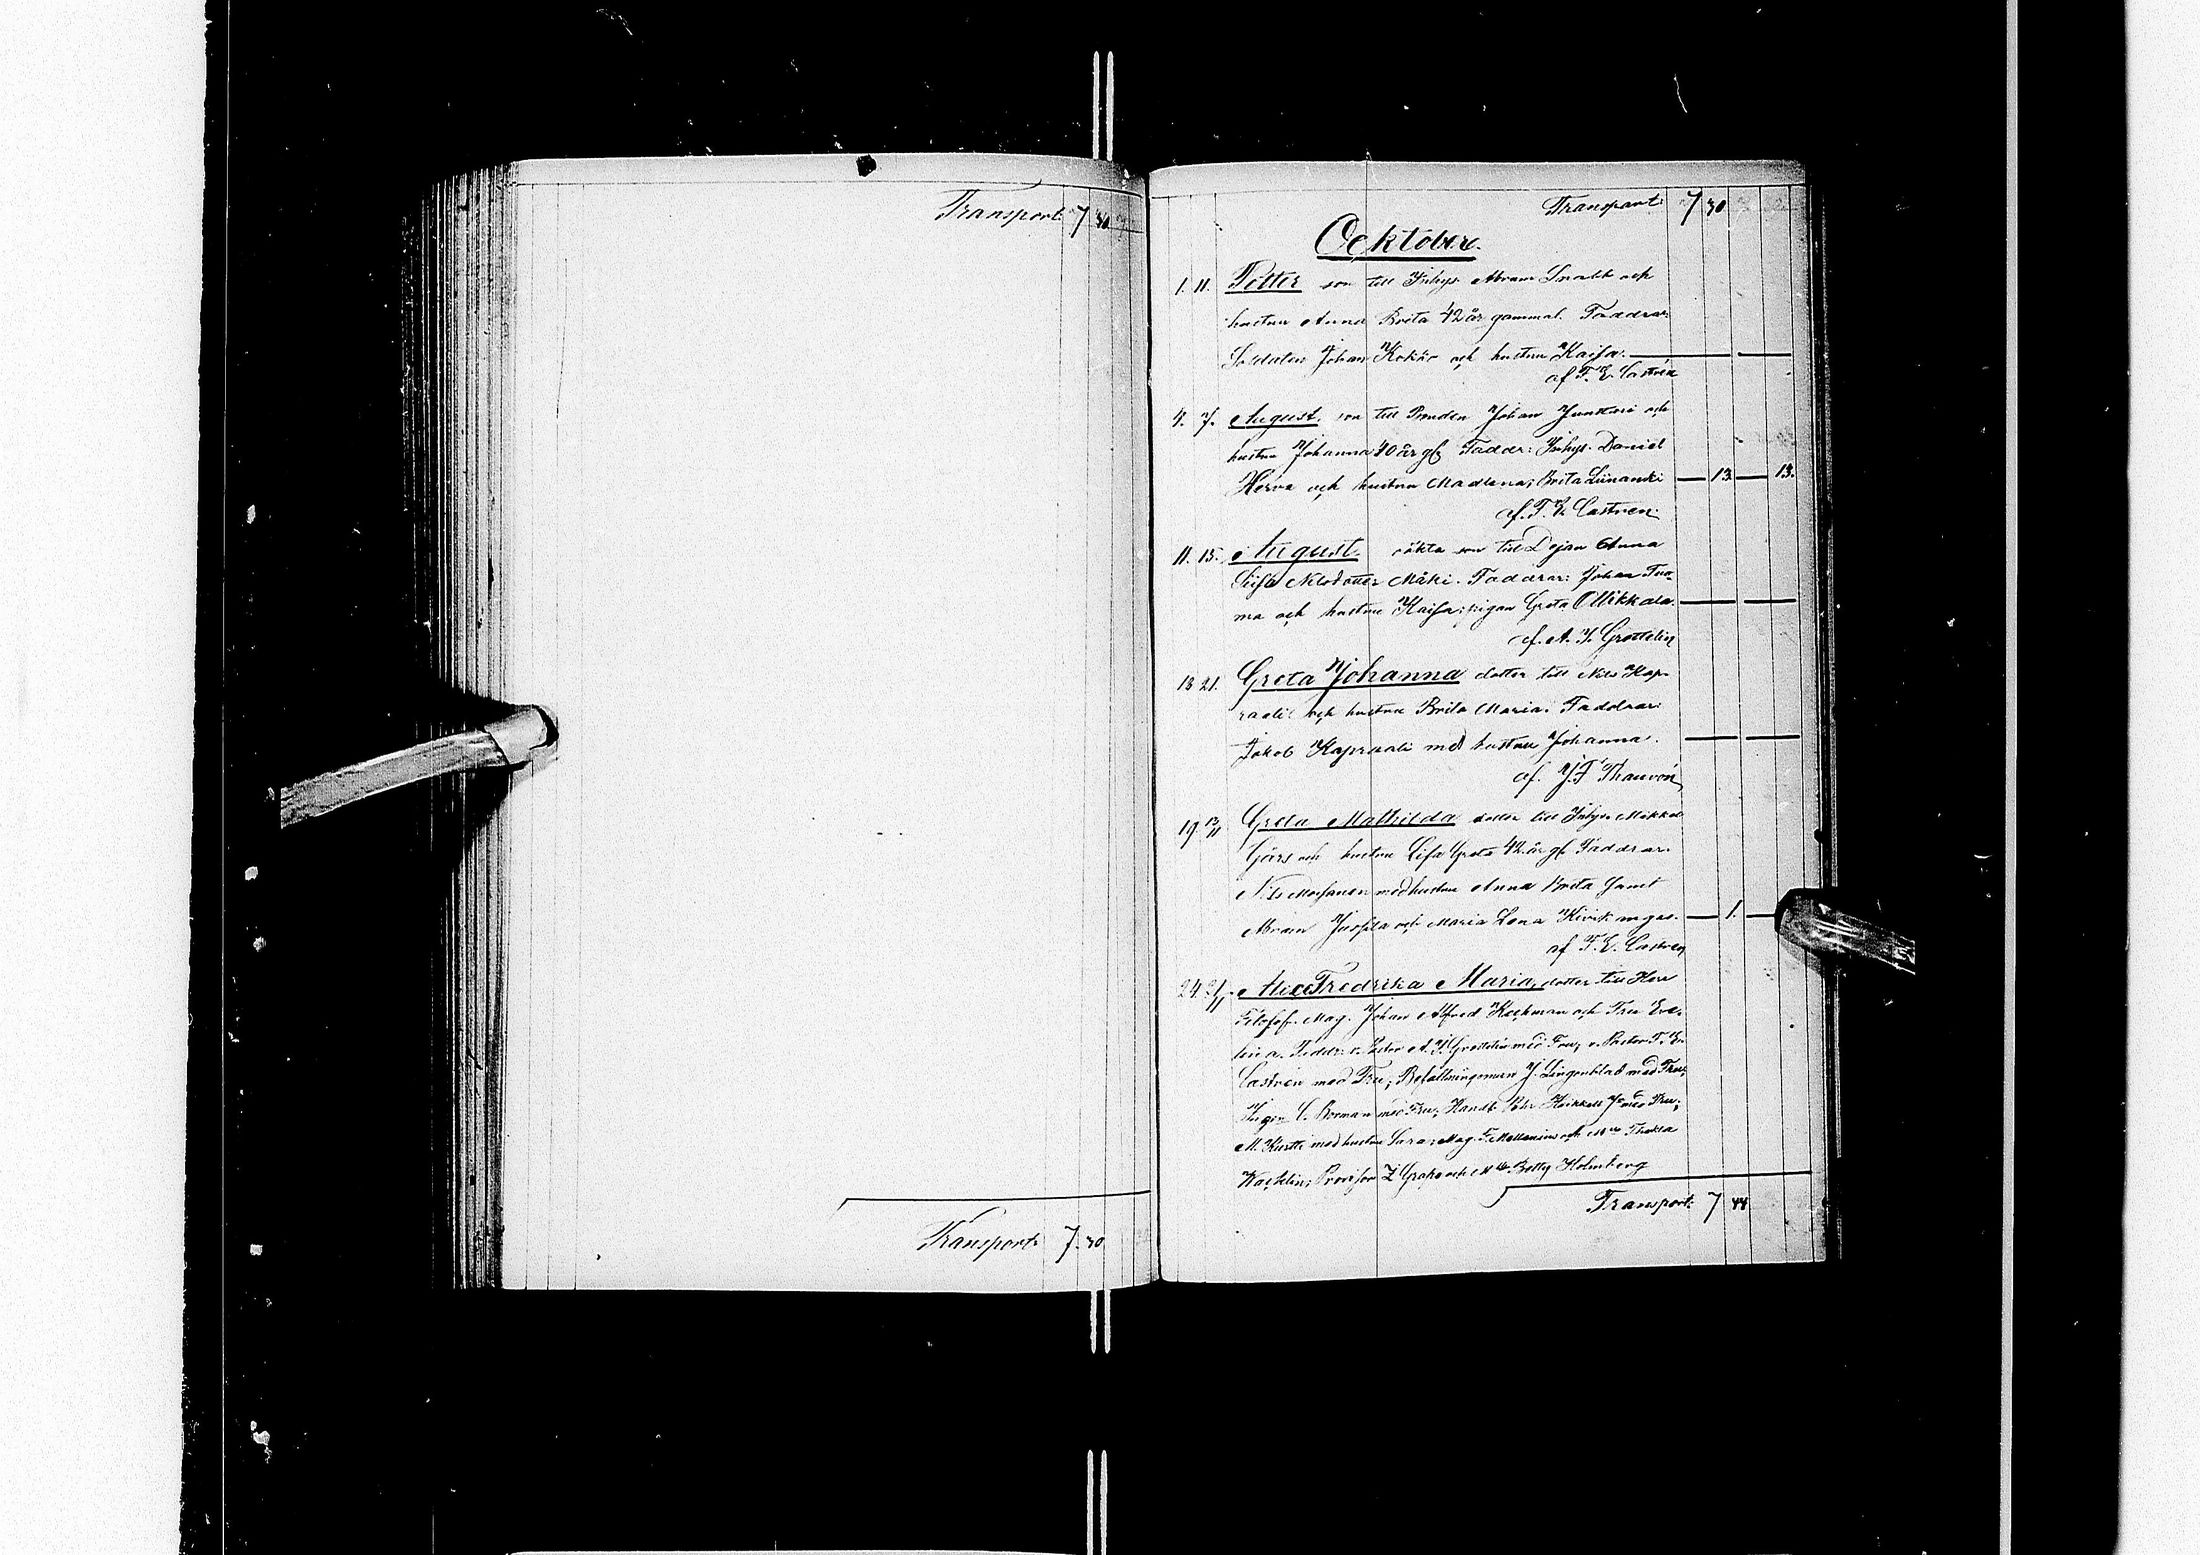 Transport: 7 30
Transport: 7. 30
Transport: 7 30
Ocktober.
1. 11. Petter son till Inhys. Abram och
hustru Anna Brita 42 år gammal. Faddrar:
Soldaten Johan och hustru Kaisa.
af F. E. Castrén
4. 7. August. son till Bonden Johan Junttari och
hustru Johanna 40 år gl. Faddr: Inhys. Daniel
Herva och hustru Madlena; Brita 13. 13.
af. F. E. Castren.
11. 15. August. oäkta son till Dejan Anna
Nilsdotter Mäki. Faddrar: Johan Tuo-
ma och hustru Kaisa; pigan Greta Ollikkala.
af. A. J. Grottelin
13 21. Greta Johanna dotter till Nils Kap-
raali och hustru Brita Maria. Faddrar:
Jakob Kapraali med hustru Johanna.
af. J. F. Thauvón
19 13/11 Greta Mathilda dotter till Inhys. Mikkel
och hustru Lisa Greta 42 år gl. Faddrar:
Nils med hustru Anna Brita samt
Abram och Maria Lena Kivikangas. 1.
af F. E. Castren
24 Fredrika Maria, dotter till Herr
Filosof. Mag. Johan Alfred och Fru Eve-
lina. Faddr: v. Pastor A. J. Grottelin med Fru; v. Pastor F. E.
Castrén med Fru; Befallningsman J. Lingonblad med Fru;
C. Borman med Fru; Handl. med Fru;
M. med hustru Sara; Mag. F. och Thekla
Provisor Z. och Betty Holmberg
Transport: 7 44